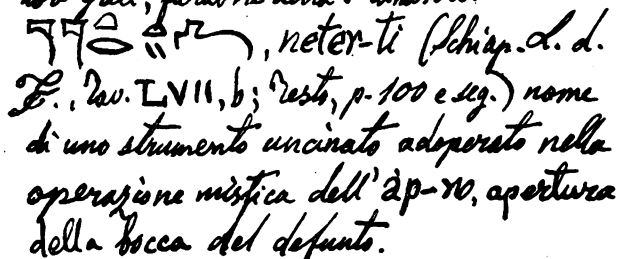 𓊹𓊹𓏏𓂋, neter-ti (Schiap. L. d.
F., Tav. LVII, b; Testo, p. 100 e seg.) nome
di uno strumento uncinato adoperato nella
operazione mistica dell' àp-ro, apertura
della bocca del defunto.